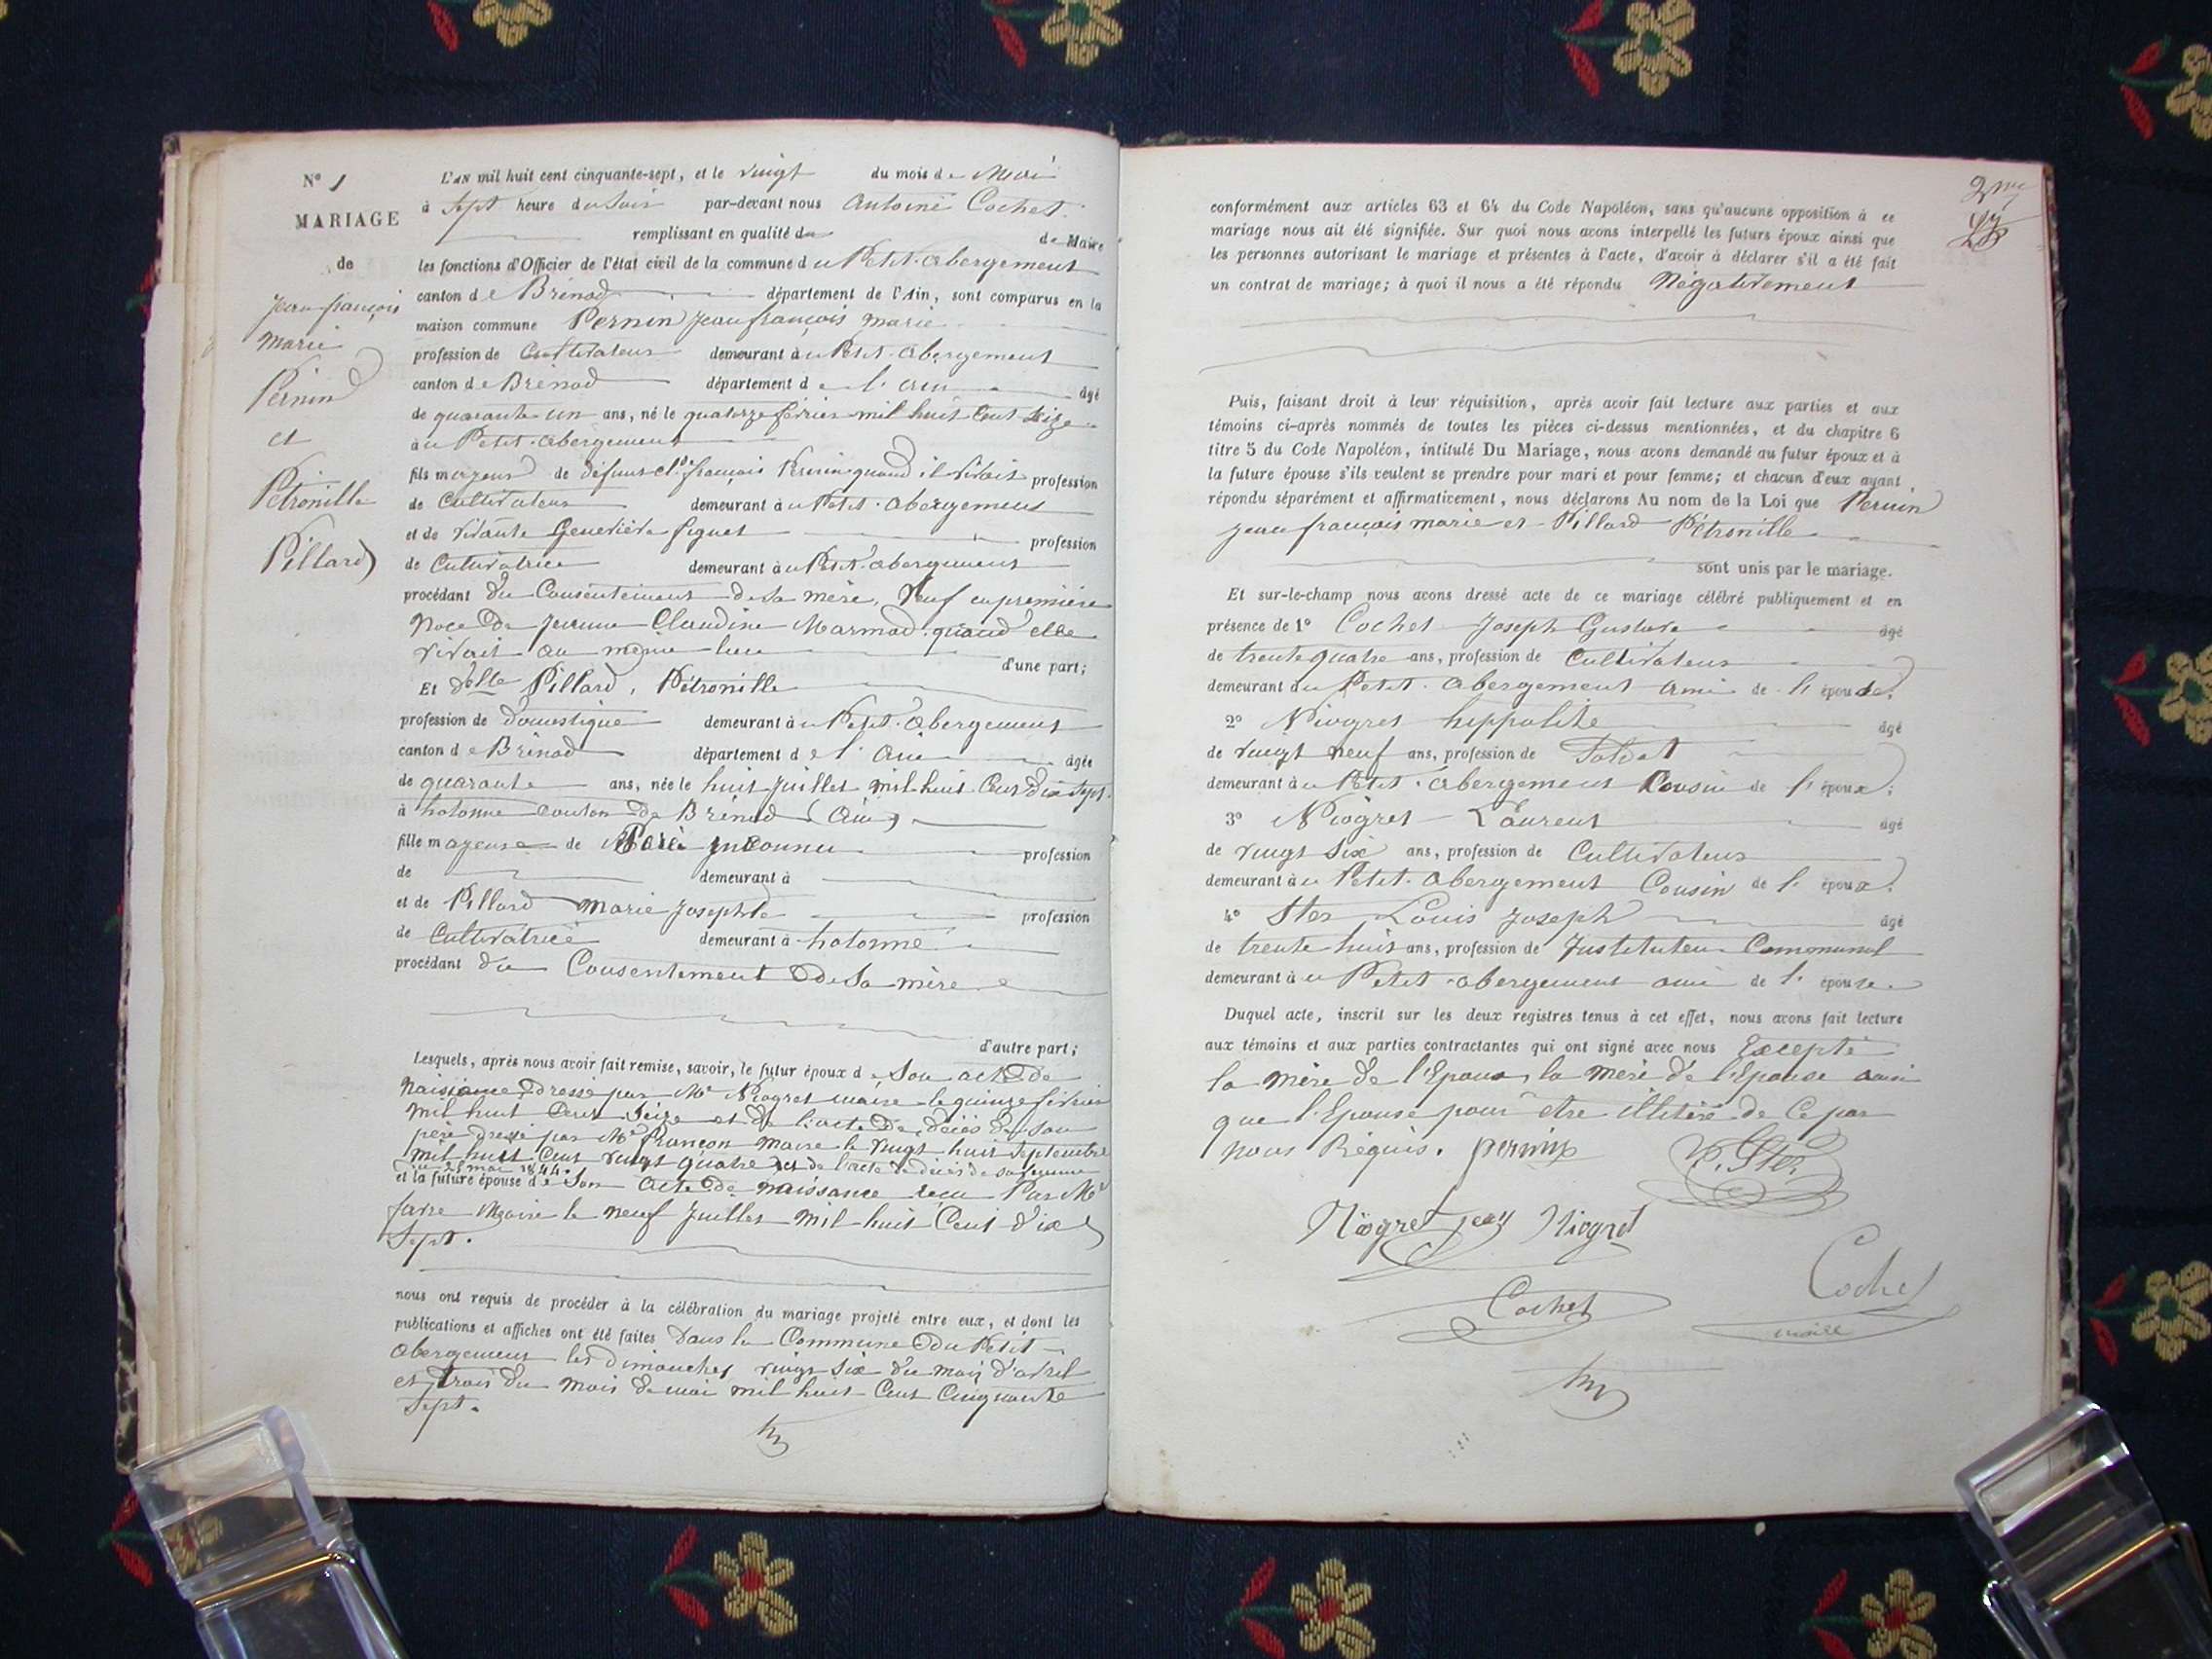 N° 1
MARIAGE
de
Jean françois
Marie
Pernin
et
Pétronille
Pillard
L'an mil huit cent cinquante-sept, et le vingt du mois de Mai
à sept heure du soir par-devant nous Antoine Cochet
remplissant en qualité de de Maire
les fonctions d'Officier de l'état civil de la commune du Petit-abergement
canton de Brénod département de l'Ain, sont comparus en la
maison commune Pernin Jean françois marie
profession de Cultivateur demeurant au Petit-abergement
canton de Brénod département de l'ain âgé
de quarante un ans, né le quatorze février mil huit Cent Seize
au Petit-abergement
fils majeur de défunt françois Pernin quand il vivait profession
de Cultivateur demeurant au Petit-abergement
et de vivante Geneviève figuet profession
de Cultivatrice demeurant au Petit-abergement
procédant du Consentement de Sa mère, Veuf en première
Noce de Jeanne Claudine Marmod quand elle
vivait au meme lieu d'une part;
Et delle Pillard, Pétronille
profession de domestique demeurant au Petit-abergement
canton de Brénod département de l'Ain âgée
de quarante ans, née le huit Juillet mil huit Cent dix Sept
à hotonne canton de Brénod (Ain)
fille majeure de Père inconnu profession
de demeurant à
et de Pillard Marie Josephte profession
de Cultivatrice demeurant à hotonne
procédant du Consentement de Sa mère
d'autre part;
Lesquels, après nous avoir fait remise, savoir, le futur époux de Son acte de
Naissance dressé par Mr Niogret maire le quinze février
mil huit Cent Seize et de l'acte de décès de Son
père dressé par Mr françon maire le vingt huit Septembre
mil huit Cent vingt quatre et de l'acte de décès de sa femme
du 28 mai 1844.
et la future épouse de Son acte de naissance reçu Par Mr
favre Maire le neuf Juillet mil huit Cent dix
Sept.
nous ont requis de procéder à la célébration du mariage projeté entre eux, et dont les
publications et affiches ont été faites dans la Commune du Petit-
abergement les dimanches vingt Six du mois d'avril
et trois du mois de mai mil huit Cent Cinquante
Sept.
2me
conformément aux articles 63 et 64 du Code Napoléon, sans qu'aucune opposition à ce
mariage nous ait été signifiée. Sur quoi nous avons interpellé les futurs époux ainsi que
les personnes autorisant le mariage et présentes à l'acte, d'avoir à déclarer s'il a été fait
un contrat de mariage; à quoi il nous a été répondu Négativement
Puis, faisant droit à leur réquisition, après avoir fait lecture aux parties et aux
témoins ci-après nommés de toutes les pièces ci-dessus mentionnées, et du chapitre 6
titre 5 du Code Napoléon, intitulé Du Mariage, nous avons demandé au futur époux et à
la future épouse s'ils veulent se prendre pour mari et pour femme; et chacun d'eux ayant
répondu séparément et affirmativement, nous déclarons Au nom de la Loi que Pernin
Jean françois marie et Pillard Pétronille
sont unis par le mariage.
Et sur-le-champ nous avons dressé acte de ce mariage célébré publiquement et en
présence de 1° Cochet Joseph Gustave âgé
de trente quatre ans, profession de Cultivateur
demeurant au Petit-abergement ami de l'époux;
2° Niogret hippolite âgé
de vingt neuf ans, profession de Soldat
demeurant au Petit-abergement Cousin de l'époux;
3° Niogret Laurent âgé
de vingt Six ans, profession de Cultivateur
demeurant au Petit-abergement Cousin de l'époux;
4° Ster Louis Joseph âgé
de trente huit ans, profession de Instituteur Communal
demeurant au Petit-abergement ami de l'épouse.
Duquel acte, inscrit sur les deux registres tenus à cet effet, nous avons fait lecture
aux témoins et aux parties contractantes qui ont signé avec nous Excepté
la mère de l'Epoux, la mère de l'Epouse ainsi
que l'Epouse pour etre illitéré de Ce par
nous Réquis. pernin Ster
Niogret Niogret
Cochet Cochet
maire